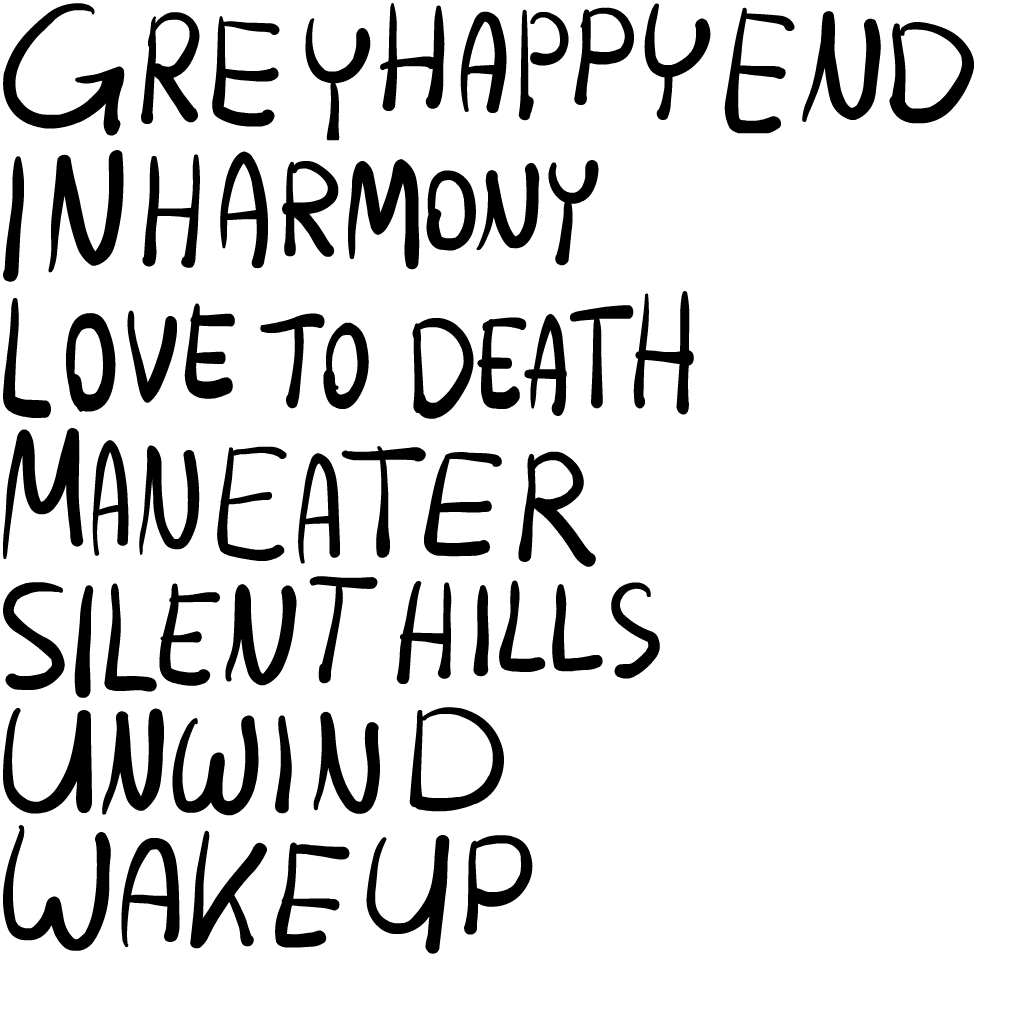 GREYHAPPYEND
INHARMONY
LOVE TO DEATH
MANEATER
SILENT HILLS
UNWIND
WAKEUP